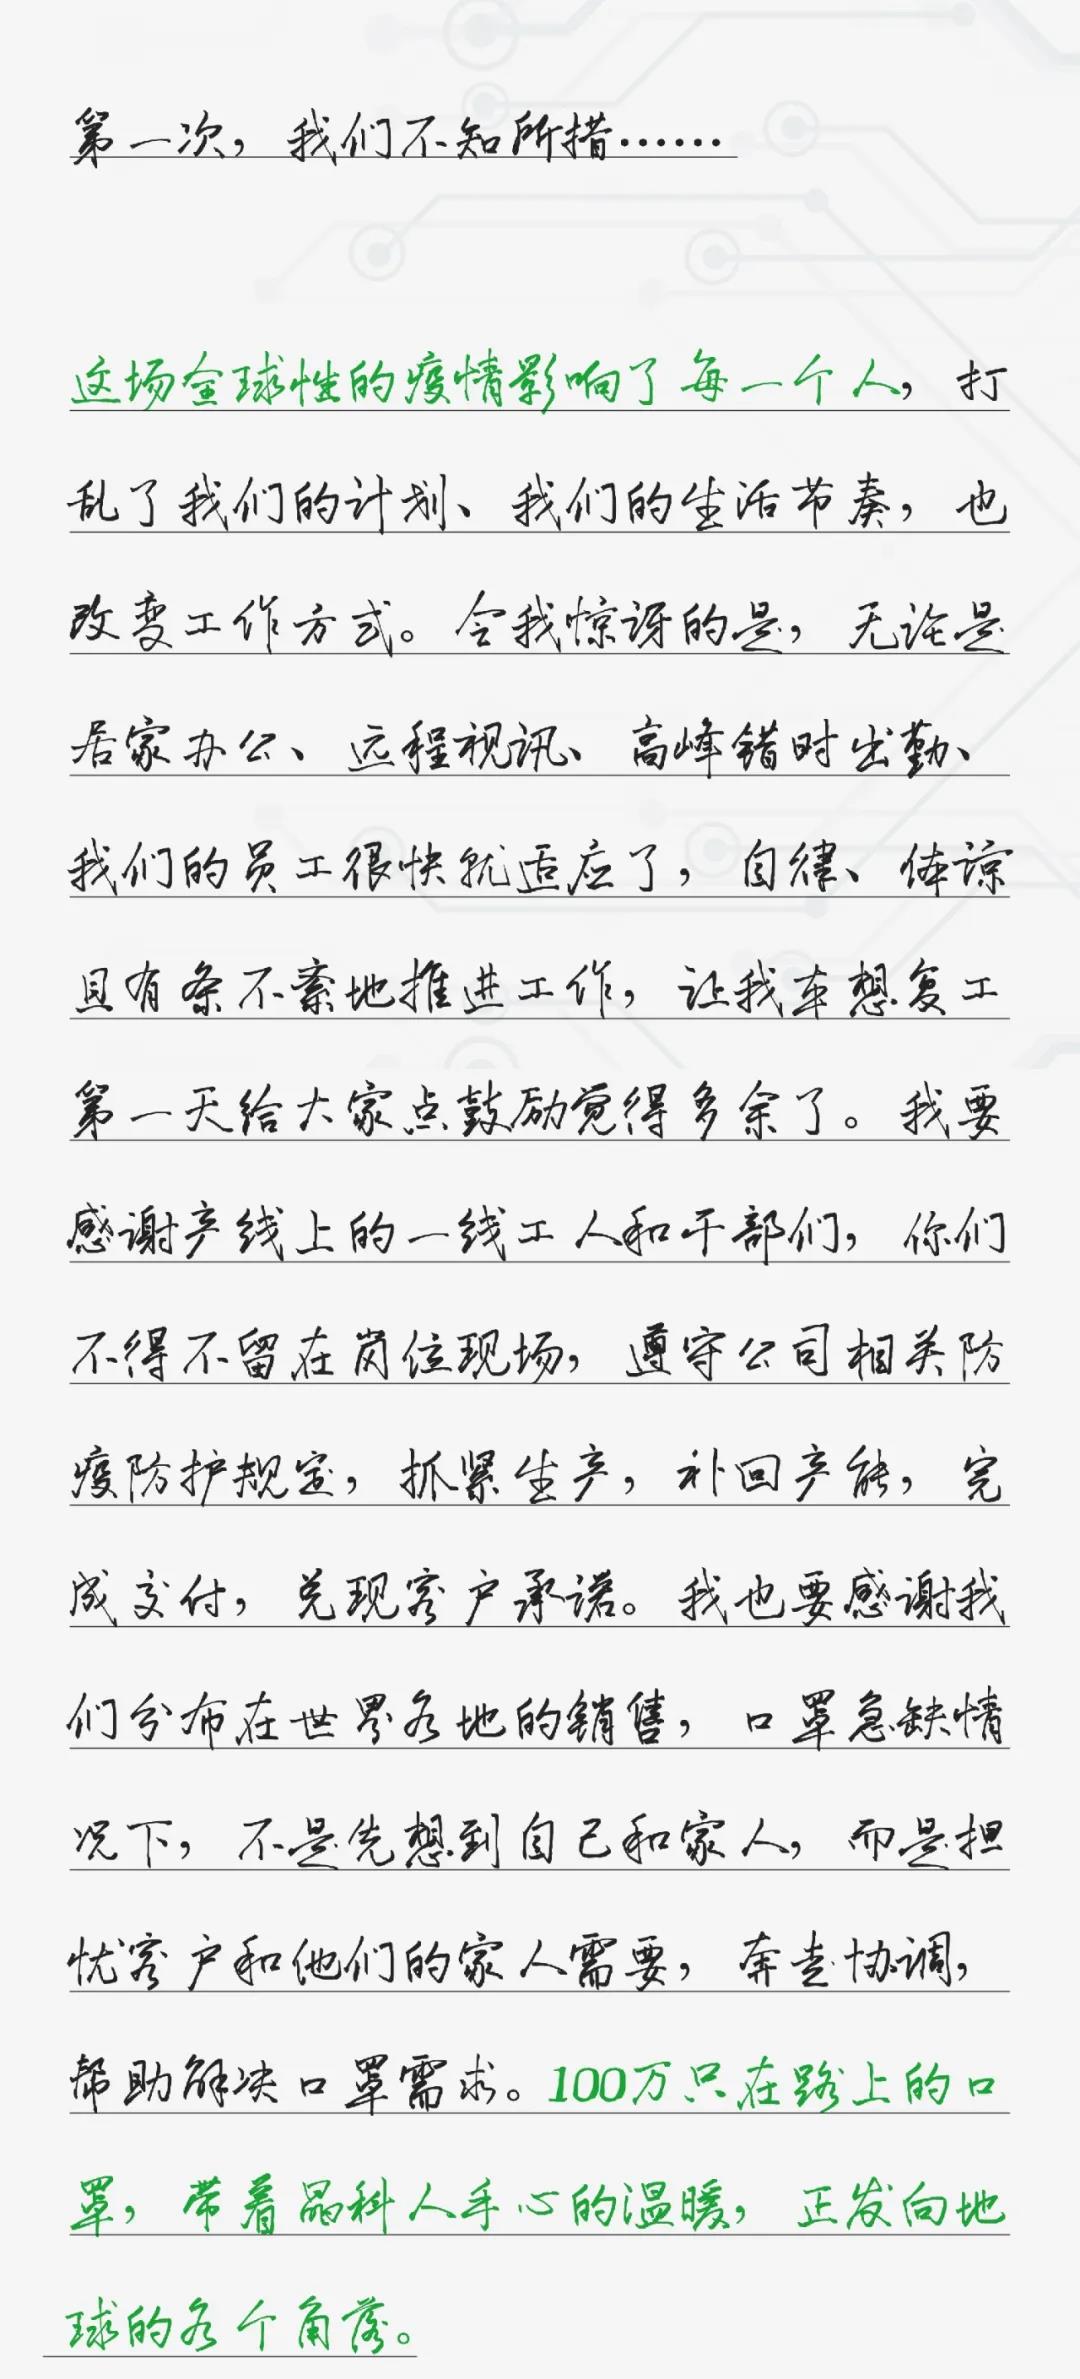 第一次，我们不知所措……
这场全球性的疫情影响了每一个人，打
乱了我们的计划、我们的生活节奏，也
改变工作方式。令我惊讶的是，无论是
居家办公、远程视讯、高峰错时出勤、
我们的员工很快就适应了，自律、体谅
且有条不紊地推进工作，让我本想复工
第一天给大家点鼓励觉得多余了。我要
感谢产线上的一线工人和干部们，你们
不得不留在岗位现场，遵守公司相关防
疫防护规定，抓紧生产，补回产能，完
成交付，兑现客户承诺。我也要感谢我
们分布在世界各地的销售，口罩急缺情
况下，不是先想到自己和家人，而是担
忧客户和他们的家人需要，奔走协调，
帮助解决口罩需求。100万只在路上的口
罩，带着晶科人手心的温暖，正发向地
球的各个角落。